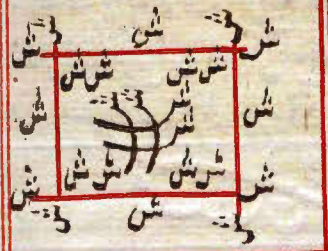 ش ش ش
شش شش
ش ش ش
ش
شش شش
ش ش ش